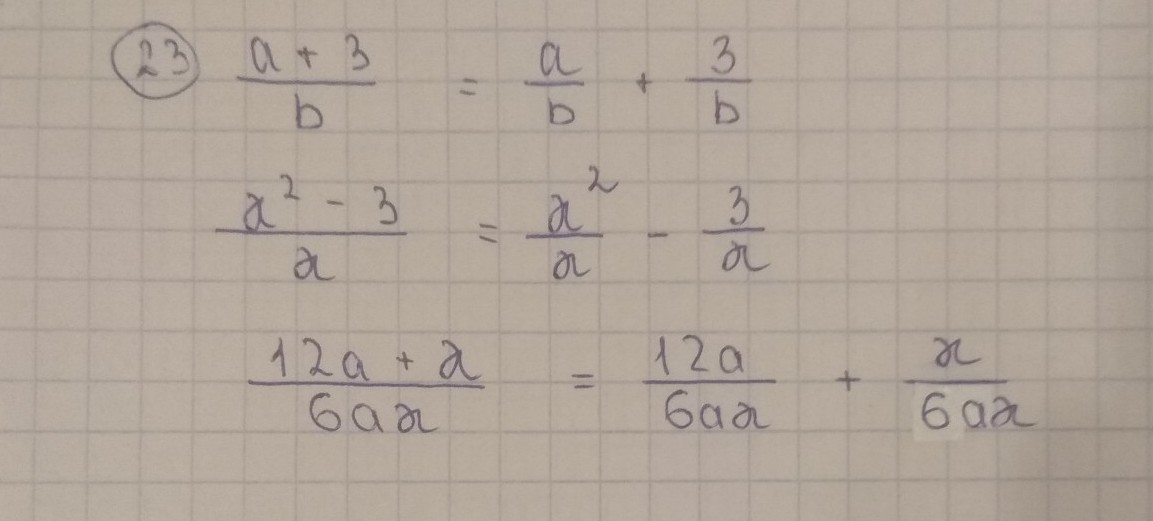 23 (a + 3)/b = a/b + 3/b
(x² - 3)/x = x²/x - 3/x
(12a + x)/(6ax) = 12a/(6ax) + x/(6ax)